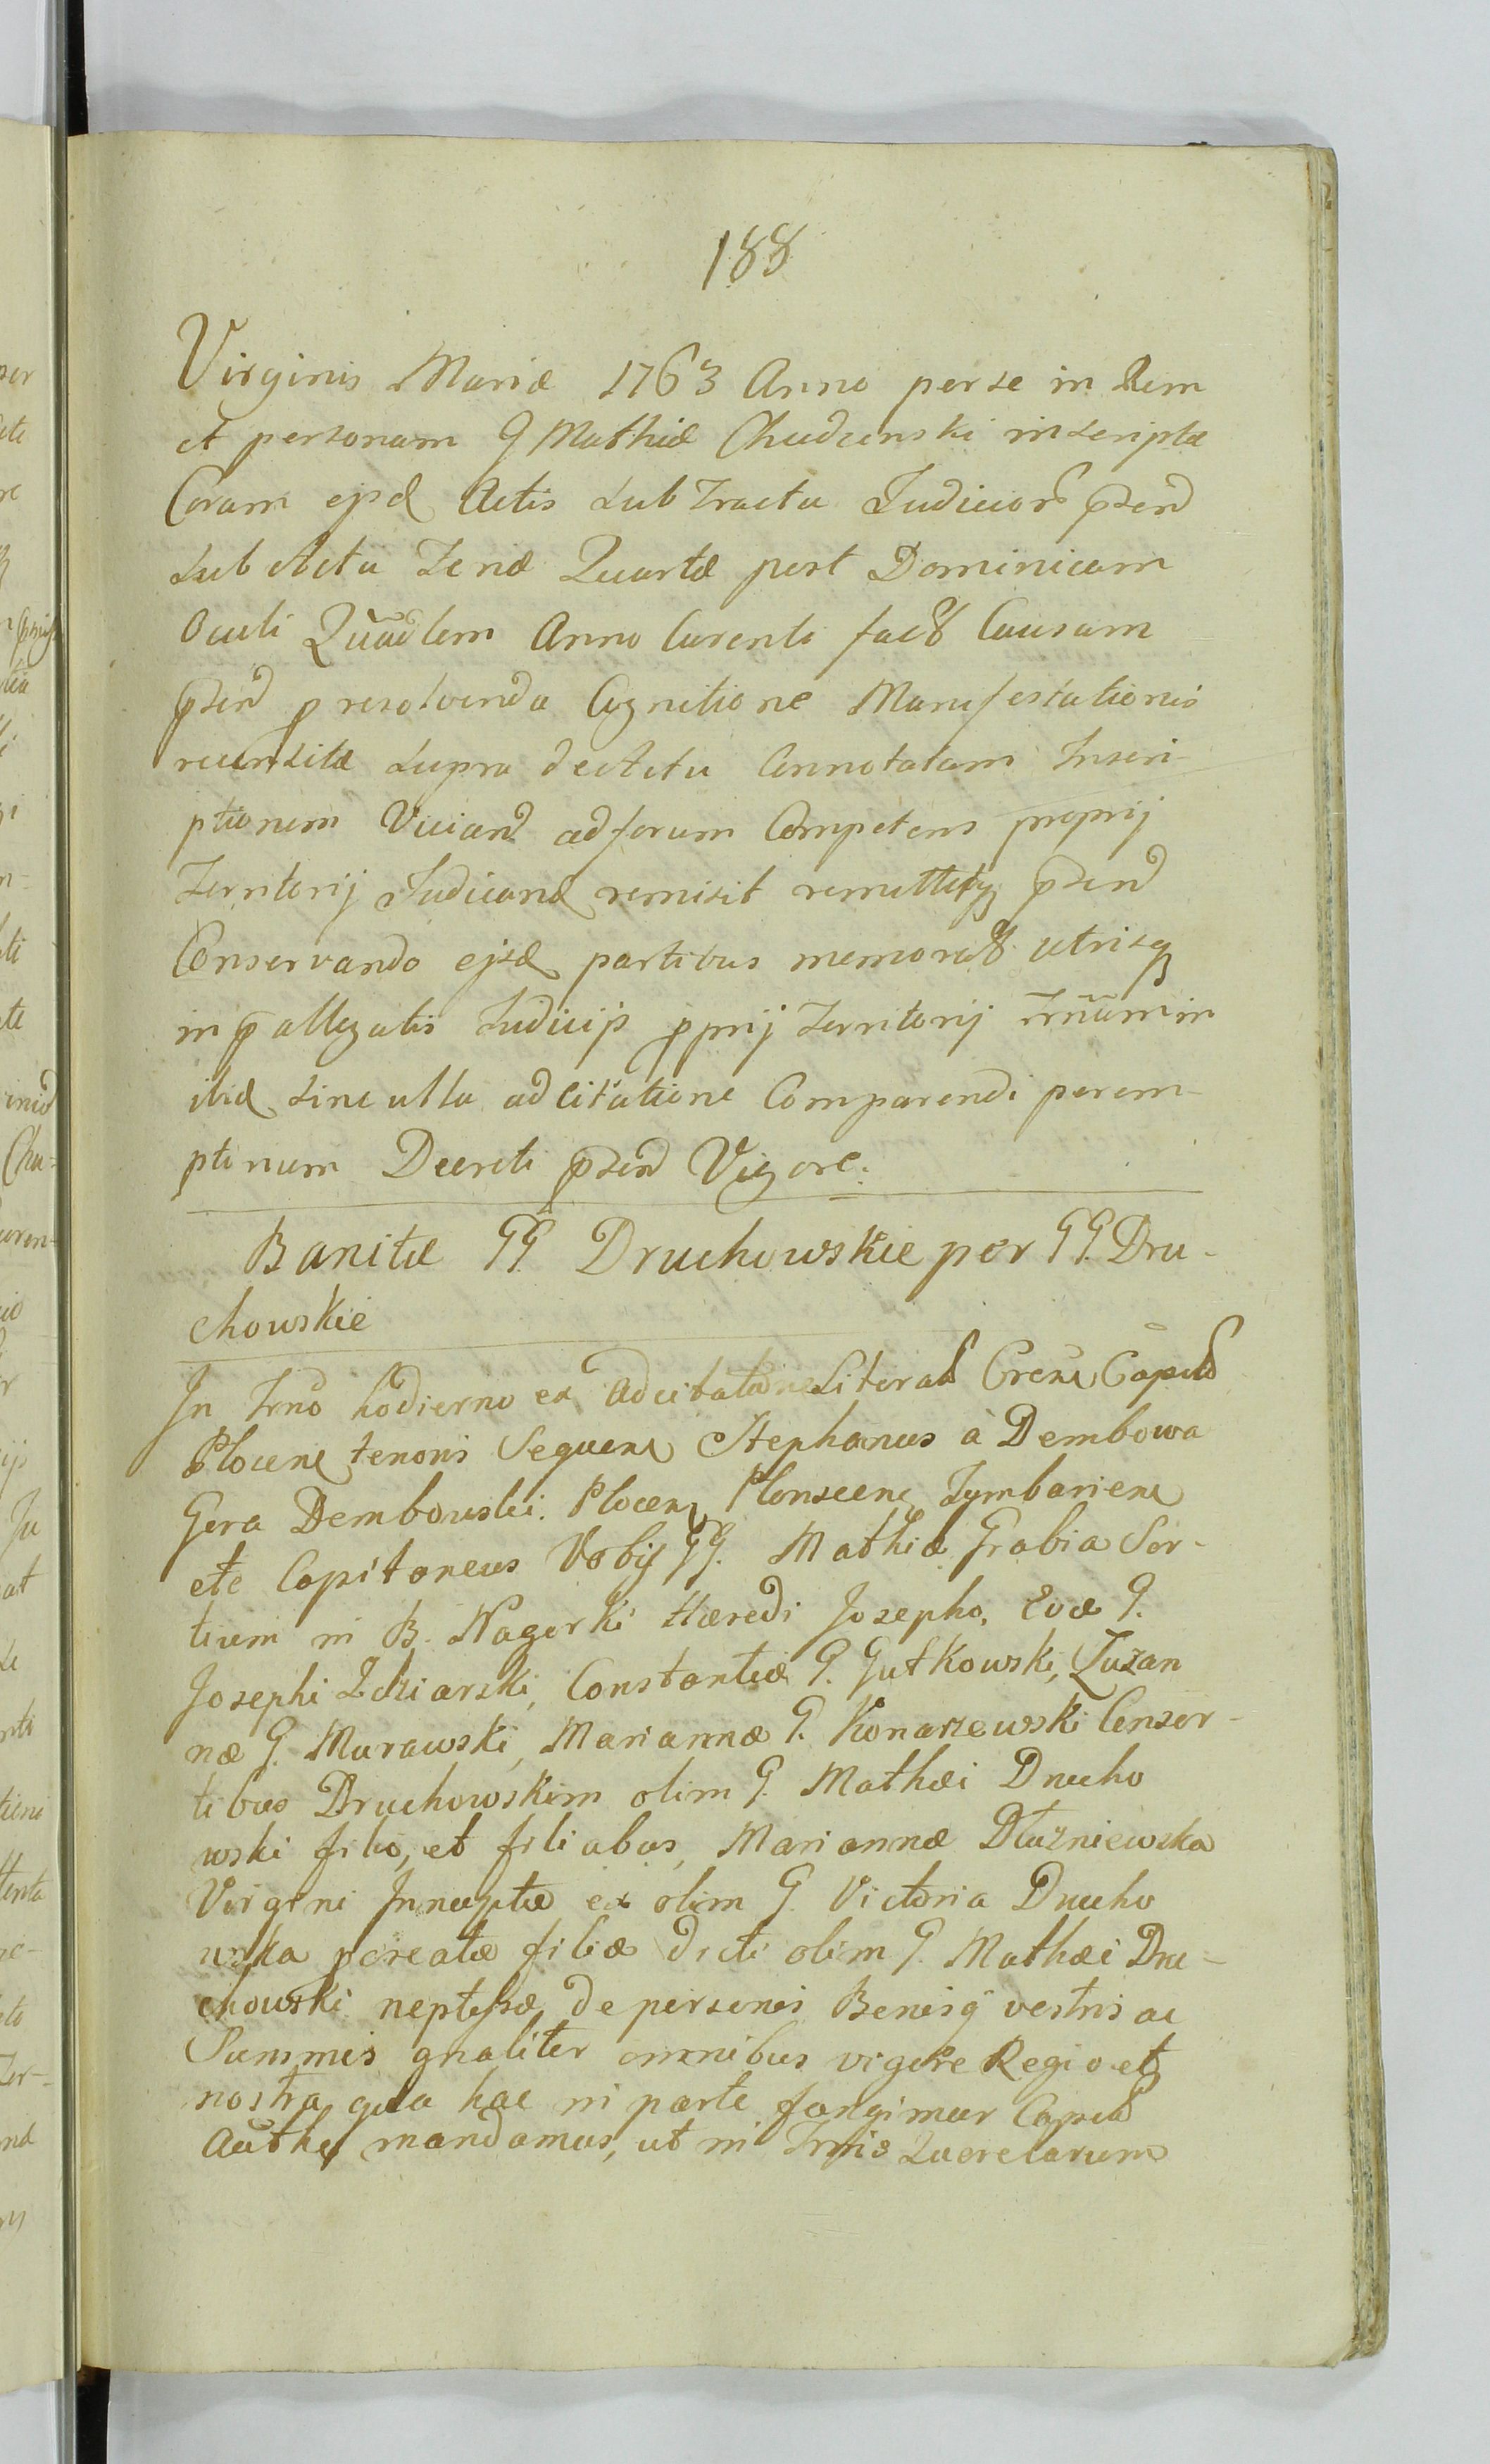 188
Virginis Mariæ 1763 Anno per se in Rem
et personam G Mathiæ Chudzinski inscriptæ
Coram ejsd Actis sub Tractu Judicior pnd
sub Actu Feriæ Quartæ post Dominicam
Oculi Quadlem Anno Curenti fact Causam
psend p resolvenda Cognitione Manifestationis
recensitæ supra de Actu Connotatam Inscri-
ptionem Viciand ad forum Competens proprij
Territorij Judicand remisit remittitq psend
Conservando ejsd partibus memorat utrisq
in p allegatis Judicijs pprij Territorij Trnum in
ibid sine ulla adcitatione Comparendi perem-
ptorium Decreti psend Vigore.
Banitæ GG Druchowskie per GG. Dru-
chowskie
In Trno hodierno ex Adcitatione Literal Crens Capitl
Plocens tenoris Sequens Stephanus à Dembowa
Gora Dembowski. Plocens, Plonscens Tymbariens
etc Capitaneus Vobis GG. Mathiæ Grabia Sor-
tium in B. Nagorki Hæredi Josepho, Evæ G.
Josephi Zdziarski, Constantiæ G. Gutkowski, Zuzan
næ G. Murawski, Mariannæ G. Konarzewski Consor-
tibus Druchowskim olim G. Mathæi Drucho
wski filio, et filiabus, Mariannæ Dłużniewska
Virgini Innuptæ ex olim G. Victoria Drucho
wska pcreatæ filiæ dicti olim G. Mathæi Dru-
chowski neptisæ de personis Bonisq vestris ac
Summis gnaliter omnibus vigore Regio et
nostra qua hac in parte fungimur Capitl
Authe mandamus, ut in Trnis Querelarum